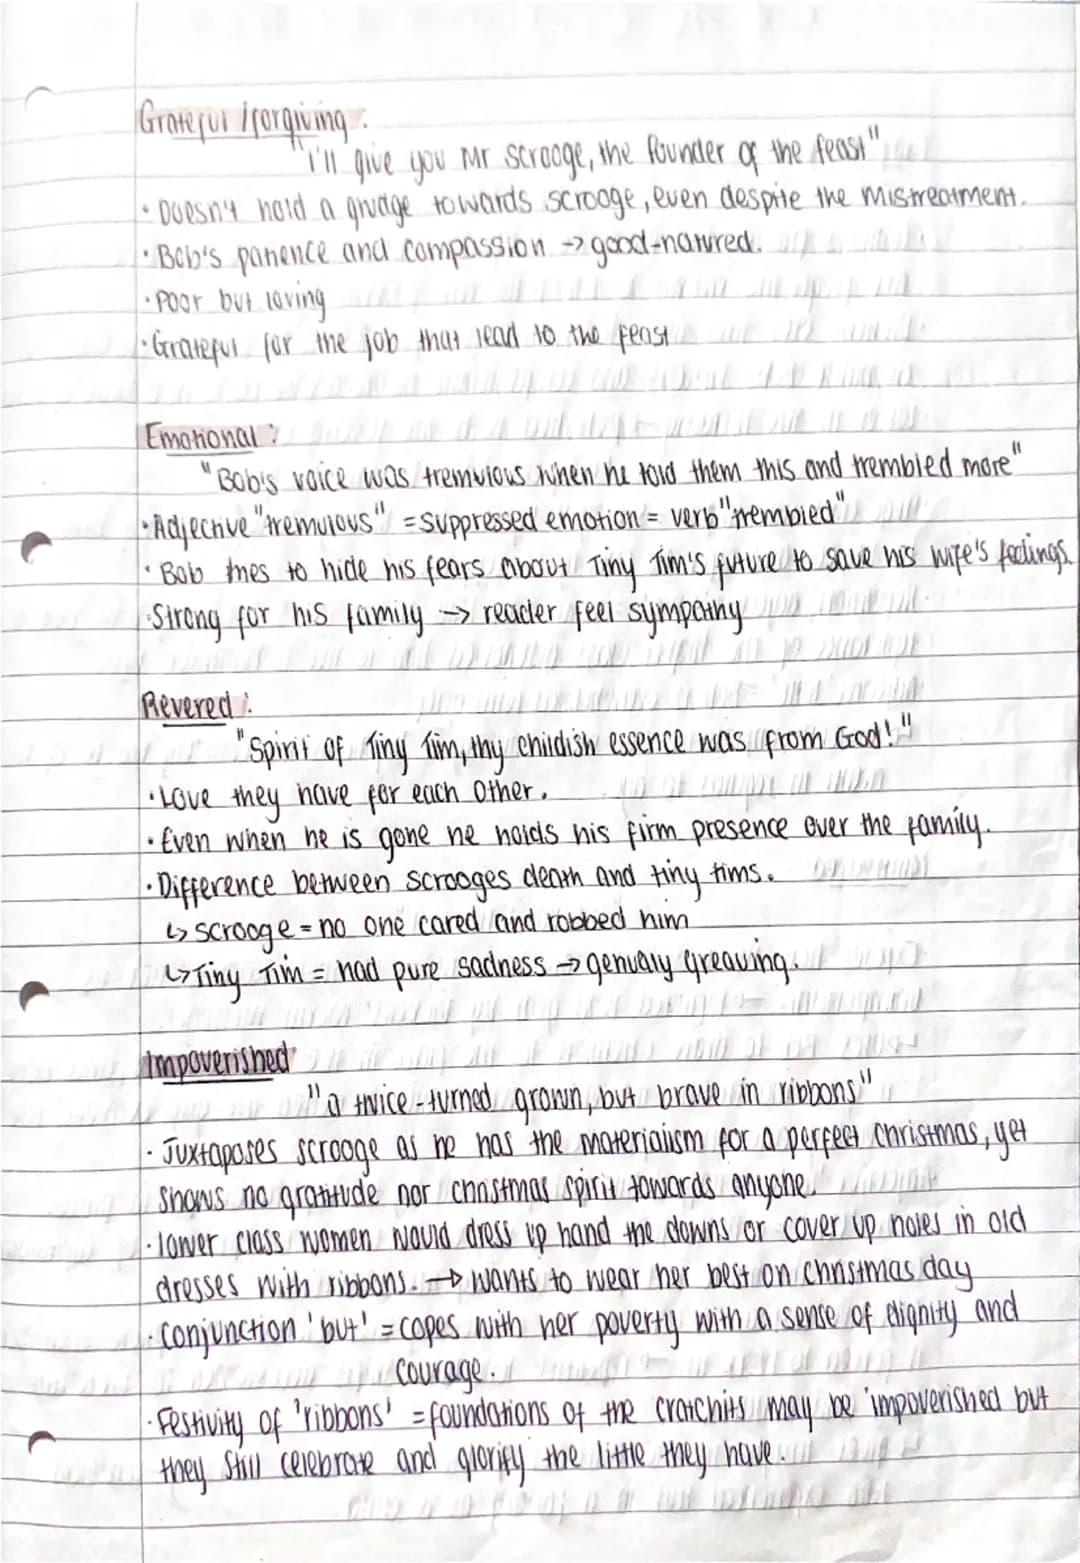 Grateful / forgiving :
"I'll give you Mr Scrooge, the founder of the feast"
• Doesn't hold a grudge towards scrooge, even despite the mistreatment.
• Bob's patience and compassion -> good-natured.
• Poor but loving
• Grateful for the job that lead to the feast
Emotional :
"Bob's voice was tremulous when he told them this and trembled more"
• Adjective "tremulous" = suppressed emotion = verb "trembled"
• Bob tries to hide his fears about Tiny Tim's future to save his wife's feelings.
• Strong for his family -> reader feel sympathy
Revered :
"Spirit of Tiny Tim, thy childish essence was from God!"
• Love they have for each other.
• Even when he is gone he holds his firm presence over the family.
• Difference between scrooges death and tiny tims.
↳ scrooge = no one cared and robbed him
↳ Tiny Tim = had pure sadness -> genualy greaving.
Impoverished
"a twice-turned grown, but brave in ribbons"
• Juxtaposes scrooge as he has the materialism for a perfect christmas, yet
shows no gratitude nor christmas spirit towards anyone.
• lower class women would dress up hand me downs or cover up holes in old
dresses with ribbons. -> wants to wear her best on christmas day
• conjunction 'but' = copes with her poverty with a sense of dignity and
courage.
• Festivity of 'ribbons' = foundations of the cratchits may be impoverished but
they still celebrate and glorify the little they have.